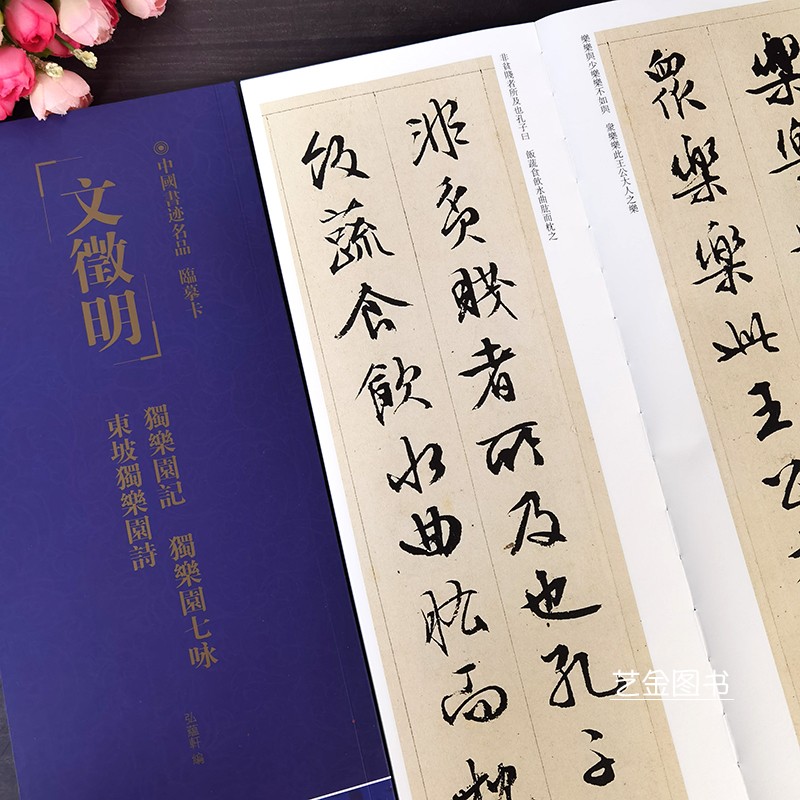 中國書迹名品 臨摹卡
文徵明
獨樂園記 獨樂園七咏
東坡獨樂園詩
弘蘊軒 編
樂樂與少樂樂不如與 衆樂樂此王公大人之樂
衆樂樂此王公
非貧賤者所及也孔子曰 飯蔬食飲水曲肱而枕之
非貧賤者所及也孔子
飯蔬食飲水曲肱而枕
艺金图书